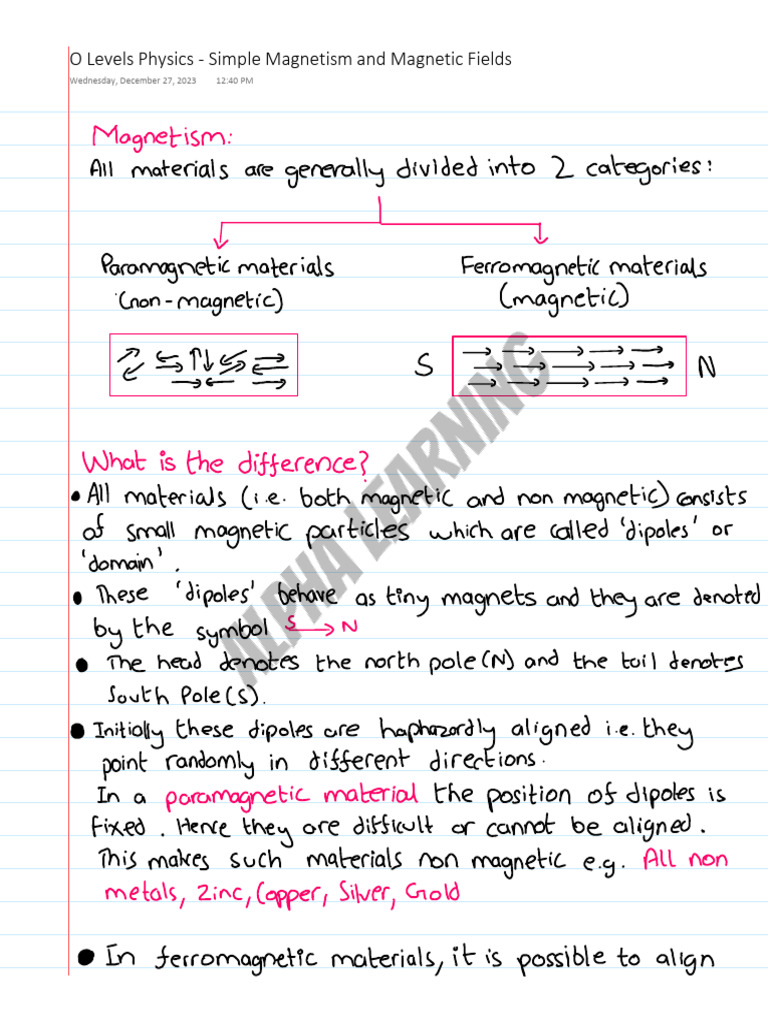 O Levels Physics - Simple Magnetism and Magnetic Fields
Wednesday, December 27, 2023 12:40 PM
Magnetism:
All materials are generally divided into 2 categories:
Paramagnetic materials
(non-magnetic)
Ferromagnetic materials
(magnetic)
S N
What is the difference?
• All materials (i.e. both magnetic and non magnetic) consists
of small magnetic particles which are called 'dipoles' or
'domain'.
• These 'dipoles' behave as tiny magnets and they are denoted
by the symbol S → N
• The head denotes the north pole (N) and the tail denotes
South Pole (S).
• Initially these dipoles are haphazardly aligned i.e. they
point randomly in different directions.
In a paramagnetic material the position of dipoles is
fixed. Hence they are difficult or cannot be aligned.
This makes such materials non magnetic e.g. All non
metals, Zinc, Copper, Silver, Gold
• In ferromagnetic materials, it is possible to align
ALPHA LEARNING